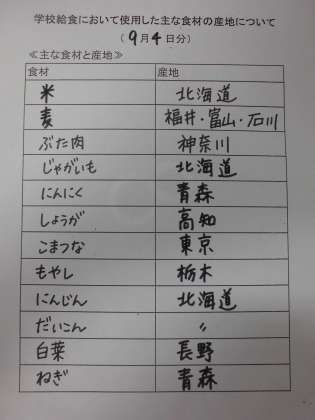 学校給食において使用した主な食材の産地について
(9月4日分)
≪主な食材と産地≫
食材 産地
米 北海道
麦 福井・富山・石川
ぶた肉 神奈川
じゃがいも 北海道
にんにく 青森
しょうが 高知
こまつな 東京
もやし 栃木
にんじん 北海道
だいこん 〃
白菜 長野
ねぎ 青森